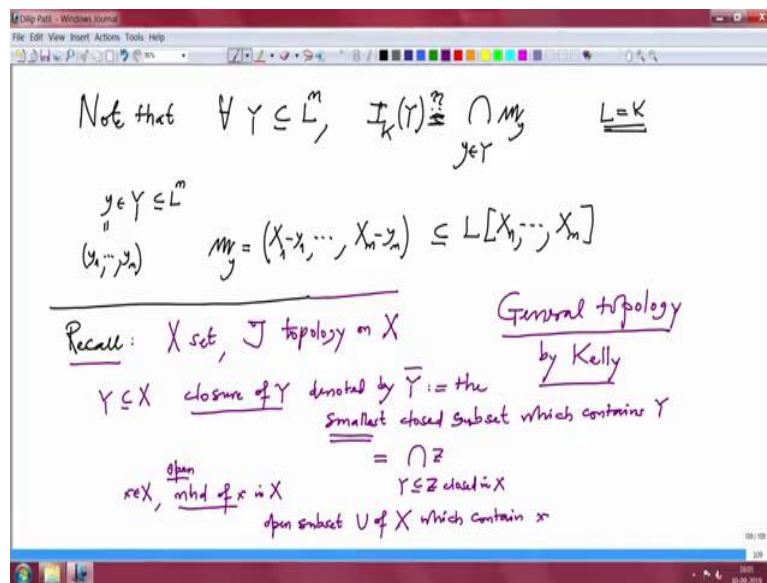 Dilip Patil - Windows Journal
File Edit View Insert Actions Tools Help
Note that ∀ Y ⊆ Lⁿ, I_K(Y) ≟ ⋂_{y∈Y} 𝔪_y L=K
y ∈ Y ⊆ Lⁿ
"
(y₁, ..., yₙ) 𝔪_y = (X₁-y₁, ..., Xₙ-yₙ) ⊆ L[X₁, ..., Xₙ]
General topology
by Kelly
Recall: X set, J topology on X
Y ⊆ X closure of Y denoted by Y̅ := the
smallest closed subset which contains Y
= ⋂ Z
Y ⊆ Z closed in X
x∈X, open nhd of x in X
open subset U of X which contain x
109/109
109
16:01
30-09-2016